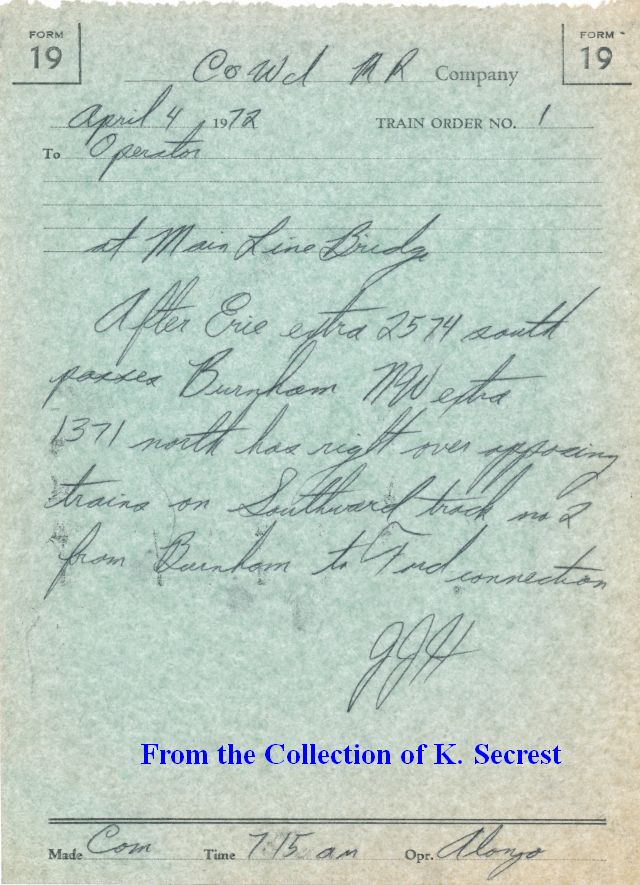 FORM 19
FORM 19
C & W I RR Company
April 4 1972 TRAIN ORDER NO. 1
To Operator
at Main Line Bridge
After Erie extra 2574 south
passes Burnham NW extra
1371 north has right over opposing
trains on Southward track no 2
from Burnham to Ford connection
GJH
From the Collection of K. Secrest
Made Com Time 7:15 am Opr. Alonzo